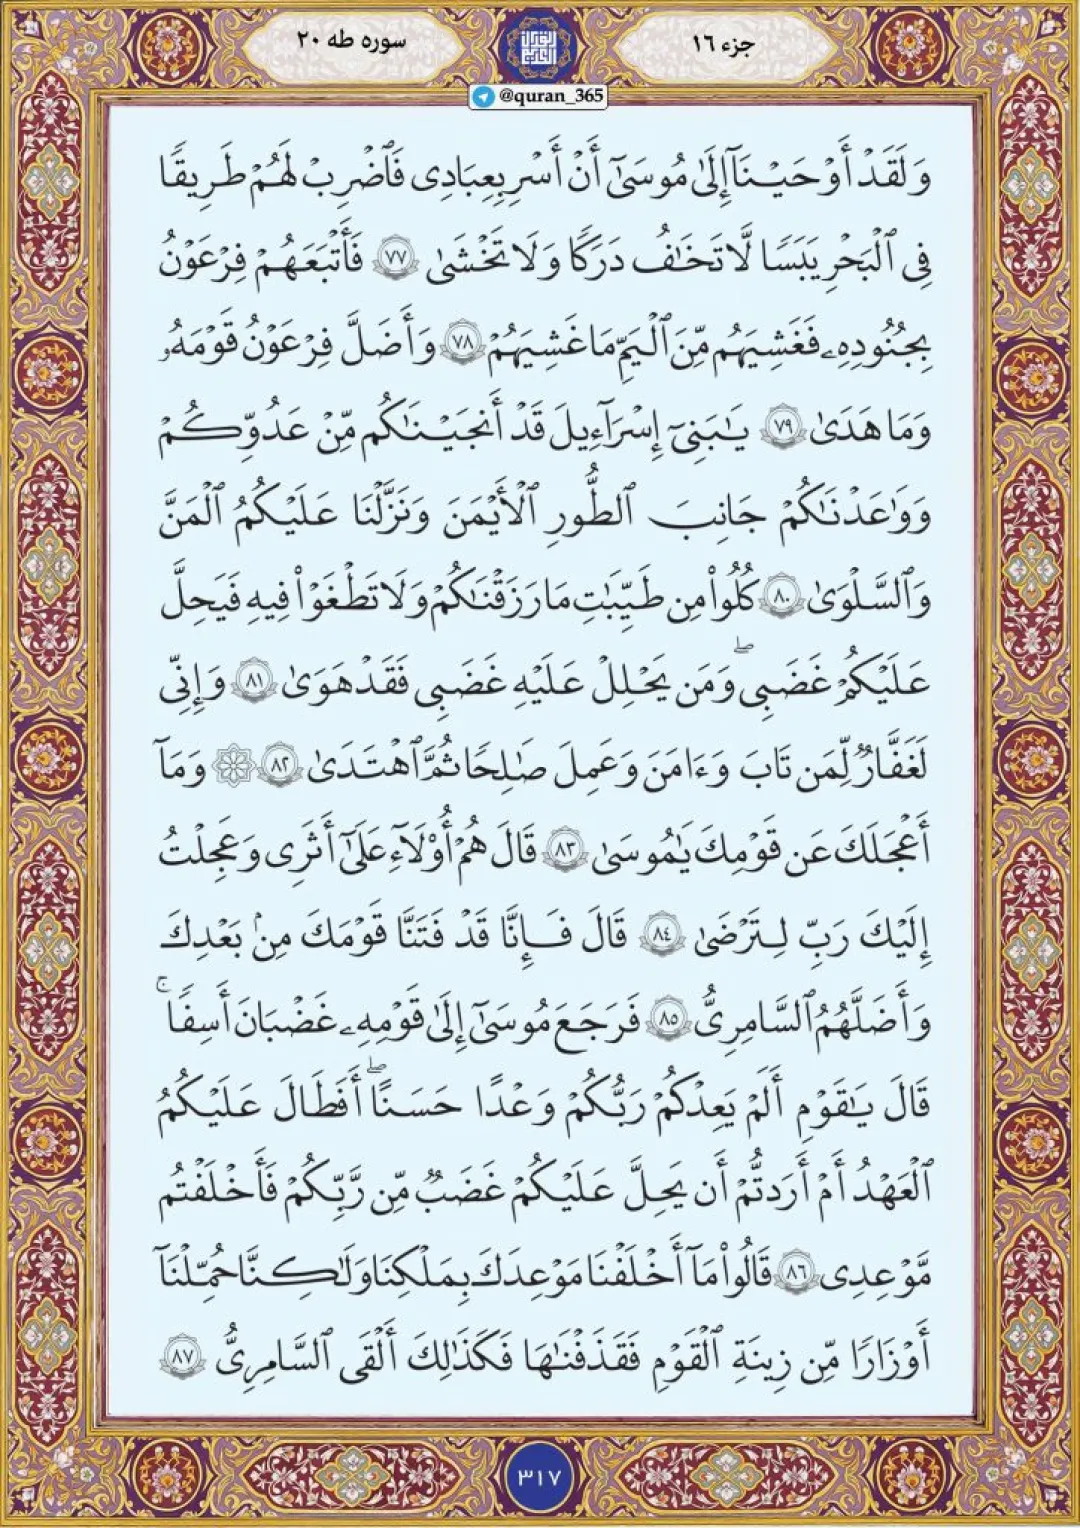 جزء ۱۶
سوره طه ۲۰
@quran_365
وَلَقَدْ أَوْحَيْنَآ إِلَىٰ مُوسَىٰٓ أَنْ أَسْرِ بِعِبَادِى فَٱضْرِبْ لَهُمْ طَرِيقًا
فِى ٱلْبَحْرِ يَبَسًا لَّا تَخَـٰفُ دَرَكًا وَلَا تَخْشَىٰ ٧٧ فَأَتْبَعَهُمْ فِرْعَوْنُ
بِجُنُودِهِۦ فَغَشِيَهُم مِّنَ ٱلْيَمِّ مَا غَشِيَهُمْ ٧٨ وَأَضَلَّ فِرْعَوْنُ قَوْمَهُۥ
وَمَا هَدَىٰ ٧٩ يَـٰبَنِىٓ إِسْرَٰٓءِيلَ قَدْ أَنجَيْنَـٰكُم مِّنْ عَدُوِّكُمْ
وَوَٰعَدْنَـٰكُمْ جَانِبَ ٱلطُّورِ ٱلْأَيْمَنَ وَنَزَّلْنَا عَلَيْكُمُ ٱلْمَنَّ
وَٱلسَّلْوَىٰ ٨٠ كُلُوا۟ مِن طَيِّبَـٰتِ مَا رَزَقْنَـٰكُمْ وَلَا تَطْغَوْا۟ فِيهِ فَيَحِلَّ
عَلَيْكُمْ غَضَبِى ۖ وَمَن يَحْلِلْ عَلَيْهِ غَضَبِى فَقَدْ هَوَىٰ ٨١ وَإِنِّى
لَغَفَّارٌ لِّمَن تَابَ وَءَامَنَ وَعَمِلَ صَـٰلِحًا ثُمَّ ٱهْتَدَىٰ ٨٢ ۞ وَمَآ
أَعْجَلَكَ عَن قَوْمِكَ يَـٰمُوسَىٰ ٨٣ قَالَ هُمْ أُو۟لَآءِ عَلَىٰٓ أَثَرِى وَعَجِلْتُ
إِلَيْكَ رَبِّ لِتَرْضَىٰ ٨٤ قَالَ فَإِنَّا قَدْ فَتَنَّا قَوْمَكَ مِنۢ بَعْدِكَ
وَأَضَلَّهُمُ ٱلسَّامِرِىُّ ٨٥ فَرَجَعَ مُوسَىٰٓ إِلَىٰ قَوْمِهِۦ غَضْبَـٰنَ أَسِفًا ۚ
قَالَ يَـٰقَوْمِ أَلَمْ يَعِدْكُمْ رَبُّكُمْ وَعْدًا حَسَنًا ۖ أَفَطَالَ عَلَيْكُمُ
ٱلْعَهْدُ أَمْ أَرَدتُّمْ أَن يَحِلَّ عَلَيْكُمْ غَضَبٌ مِّن رَّبِّكُمْ فَأَخْلَفْتُم
مَّوْعِدِى ٨٦ قَالُوا۟ مَآ أَخْلَفْنَا مَوْعِدَكَ بِمَلْكِنَا وَلَـٰكِنَّا حُمِّلْنَآ
أَوْزَارًا مِّن زِينَةِ ٱلْقَوْمِ فَقَذَفْنَـٰهَا فَكَذَٰلِكَ أَلْقَى ٱلسَّامِرِىُّ ٨٧
۳۱۷